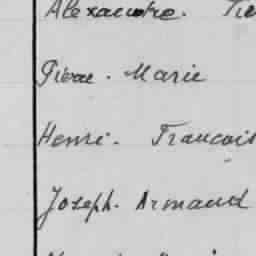 Alexandre.
Pierre. Marie
Henri. Francois
Joseph. Armand